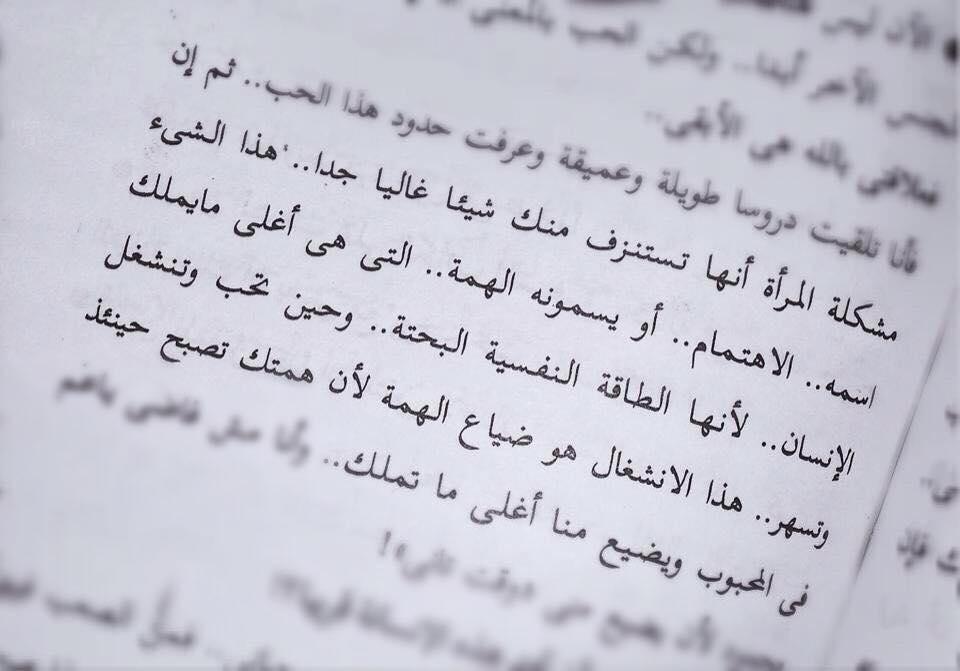 الآن ليس
الجنس الآخر أيضا.. ولكن الحب بالمعنى
فعلاقتى بالله هى الأبقى..
فأنا تلقيت دروسا طويلة وعميقة وعرفت حدود هذا الحب.. ثم إن
مشكلة المرأة أنها تستنزف منك شيئا غاليا جدا.. هذا الشىء
اسمه.. الاهتمام.. أو يسمونه الهمة.. التى هى أغلى مايملك
الإنسان.. لأنها الطاقة النفسية البحتة.. وحين تحب وتنشغل
وتسهر.. هذا الانشغال هو ضياع الهمة لأن همتك تصبح حينئذ
فى المحبوب ويضيع منا أغلى ما تملك.. وأنا مش فاضى ياعم